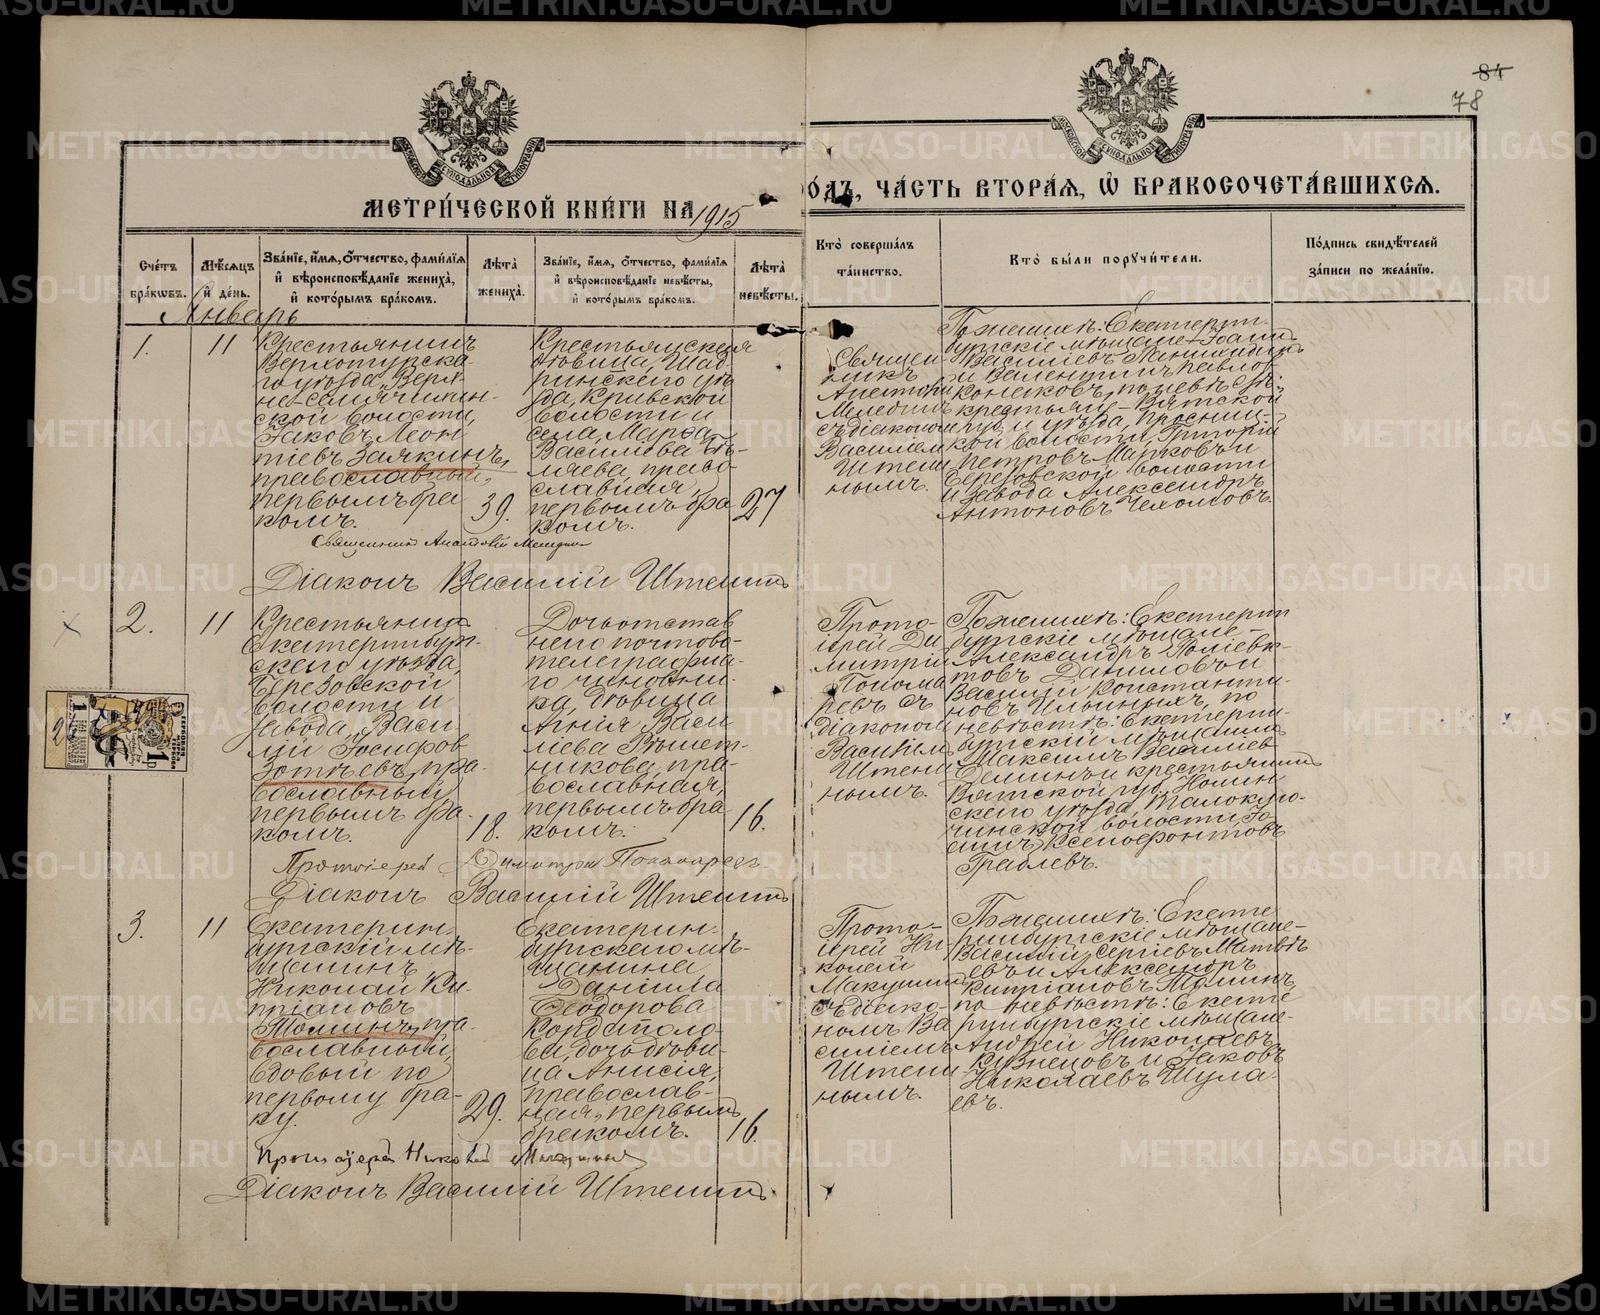 84
78
МЕТРИ́ЧЕСКОЙ КНИ́ГИ НА 1915
ГО́ДЪ, ЧА́СТЬ ВТОРА́Я, Ѡ҆ БРАКОСОЧЕТА́ВШИХСЯ.
Сче́тъ бра́кѡвъ.
Мѣ́сяцъ и҆ де́нь.
Зва́нїе, и҆́мя, ѻ҆́тчество, фами́лїя
и҆ вѣроисповѣ́данїе жениха̀,
и҆ кото́рымъ бра́комъ.
Лѣ́та жениха̀.
Зва́нїе, и҆́мя, ѻ҆́тчество, фами́лїя
и҆ вѣроисповѣ́данїе невѣ́сты,
и҆ кото́рымъ бра́комъ.
Лѣ́та невѣ́сты.
Кто̀ соверша́лъ та́инство.
Кто̀ бы́ли порꙋчи́тели.
По́дпись свидѣ́телей
за́писи по жела́нїю.
Январь
1.
11
Крестьянинъ
Верхотурска-
го уѣзда, Верх-
не-Салдинской
волости,
Іаковъ Леон
тіевъ Заякинъ,
православный,
первымъ бра
комъ.
39.
Крестьянская
дѣвица, Шад-
ринскаго уѣз
да, Кривской
волости и
села, Марѳа
Васильева Бѣ-
ляева, право
славная,
первымъ бра
комъ.
27
Священ-
никъ
Анатолій
Мелединъ
съ діакономъ
Василіем
Штени
нымъ.
По женихѣ: Екатерин-
бургскіе мѣщане Іоаннъ
Василіевъ
и Валентинъ Павлов
Конюховъ, по невѣстѣ:
крестьяне – Вятской
губ. и уѣзда,
кой волости, Григорій
Петровъ Марковъ и
Березовской волости
и завода Александръ
Антоновъ Чехомовъ.
Священникъ Анатолій Меледин
Діаконъ Василій Штенинъ
2.
11
Крестьянинъ
Екатеринбур-
скаго уѣзда,
Березовской
волости и
завода, Васи-
лій Іосифов
Зотѣевъ, пра-
вославный,
первымъ бра-
комъ.
18.
Дочь отстав
ного почтово-
телеграфна-
го чиновни-
ка, дѣвица
Агнія Васи-
льева Рѣшет-
никова, пра-
вославная,
первымъ бра
комъ.
16.
Прото-
іерей Ди
митрій
Понома
ревъ съ
діакономъ
Василіем
Штени
нымъ.
По женихѣ: Екатерин
бургскіе мѣщане –
Александръ Поліевк-
товъ Даниловъ и
Василій Константи-
новъ Ильиныхъ, по
невѣстѣ: Екатерин-
бургскій мѣщанинъ
Максимъ Василіев
Деминъ и крестьянинъ
Вятской губ. Нолин
скаго уѣзда,
чинской волости, Іо-
аннъ Ксенофонтовъ
Граблевъ.
Протоіерей Димитрій Пономаревъ
Діаконъ Василій Штенинъ
3.
11
Екатерин-
бургскій мѣ-
щанинъ
Николай Ки-
пріановъ
Толпинъ, пра-
вославный,
вдовый по
первому бра-
ку.
29.
Екатерин-
бургскаго мѣ-
щанина
Даніила
Ѳеодорова
Кордаполо-
ва, дочь дѣви-
ца Анисія,
православ-
ная, первымъ
бракомъ.
16.
Прото-
іерей Ни-
колай
Макушинъ
съ діако-
номъ Ва
силіемъ
Штени
нымъ.
По женихѣ: Екате
ринбургскіе мѣщане –
Василій Сергіевъ Матвѣ
евъ и Александръ
Кипріановъ Толпинъ,
по невѣстѣ: Екате
ринбургскіе мѣщане –
Андрей Николаевъ
Кузнецовъ и Іаковъ
Николаевъ Шула-
евъ.
Протоіерей Николай Макушинъ
Діаконъ Василій Штенинъ
METRIKI.GASO-URAL.RU